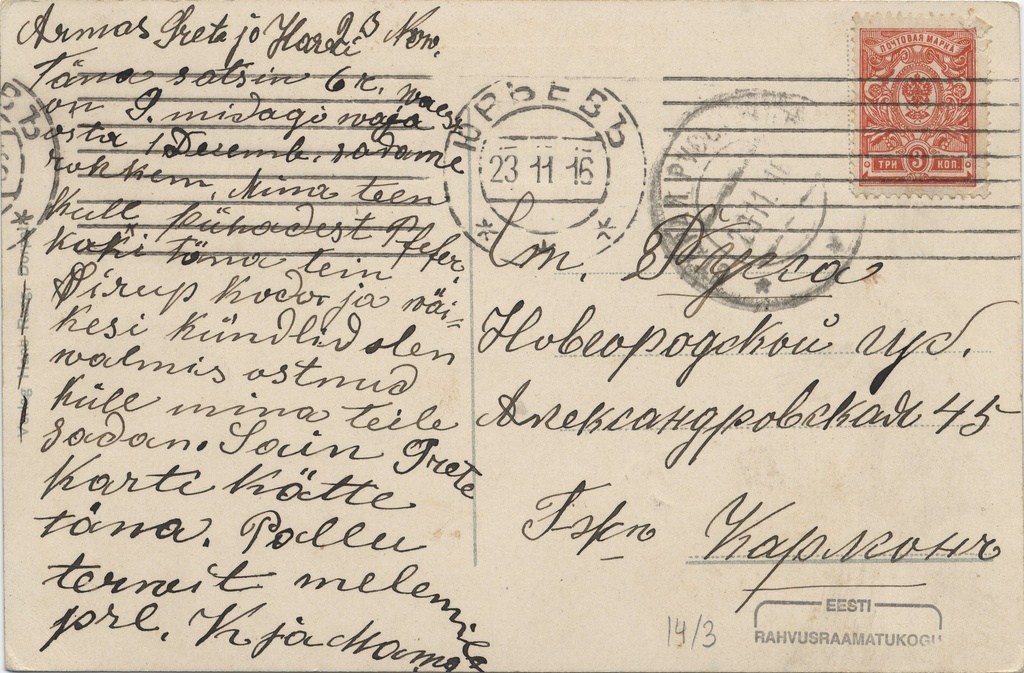 Armas Greta ja Harri 23 Now.
Täna satsin 6 r. waest
on 9. midagi waja
osta 1 Decemb. sadame
rohkem. Mina teen
küll pühadest Pfefer
kuki täna tein
Sirup kodo ja wäi-
kesi kündlid olen
walmis ostnud
küll mina teile
sadan. Sain Grete
karti kätte
täna. Pallu
terwit melemile
prl. K ja Mama
ПОЧТОВАЯ МАРКА
ТРИ 3 КОП.
ЮРЬЕВЪ
23 11 16
Ст.
Новгородской губ.
Александровская 45
Г-жѣ Карлсонъ
14/3
EESTI
RAHVUSRAAMATUKOGU